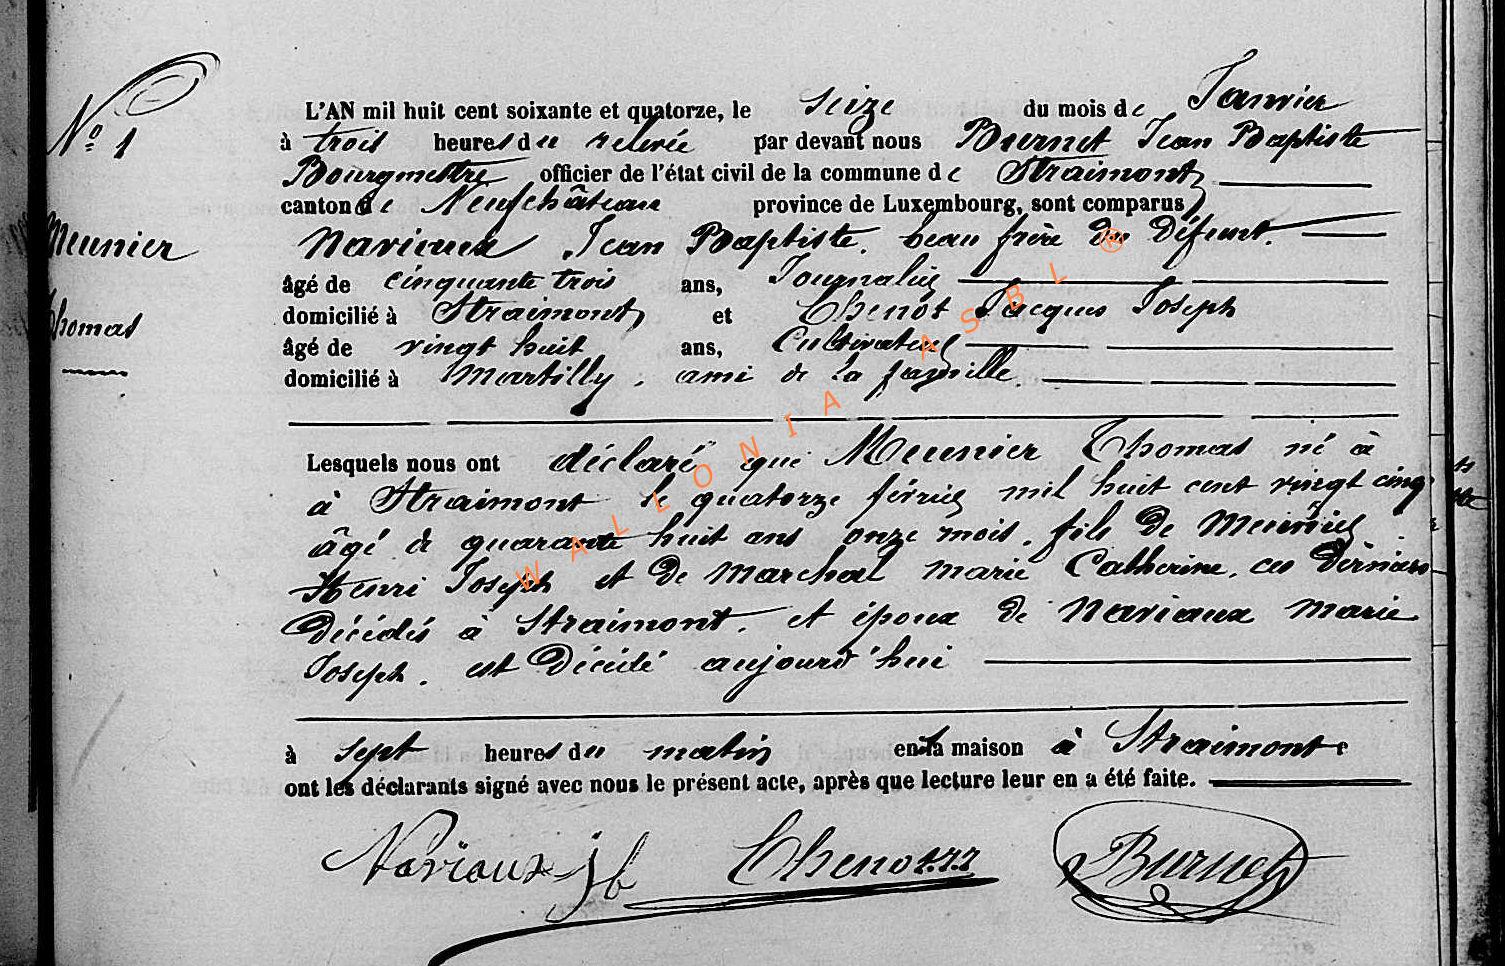 N° 1
Meunier
Thomas
L'AN mil huit cent soixante et quatorze, le seize du mois de Janvier
à trois heures du relevée par devant nous Burnet Jean Baptiste
Bourgmestre officier de l'état civil de la commune de Straimont
canton de Neufchâteau province de Luxembourg, sont comparus
Naviaux Jean Baptiste, beau frère du défunt.
âgé de cinquante trois ans, Journalier
domicilié à Straimont et Chenot Jacques Joseph
âgé de vingt huit ans, Cultivateur
domicilié à Martilly, ami de la famille.
Lesquels nous ont déclaré que Meunier Thomas né à
à Straimont le quatorze février mil huit cent vingt cinq
âgé de quarante huit ans onze mois, fils de Meunier
Henri Joseph et de Marchal Marie Catherine, ces derniers
décédés à Straimont, et époux de Naviaux Marie
Joseph, est décédé aujourd'hui
à sept heures du matin en sa maison à Straimont e
ont les déclarants signé avec nous le présent acte, après que lecture leur en a été faite.
Naviaux jb Chenot J.J Burnet
WALLONIA ASBL ®